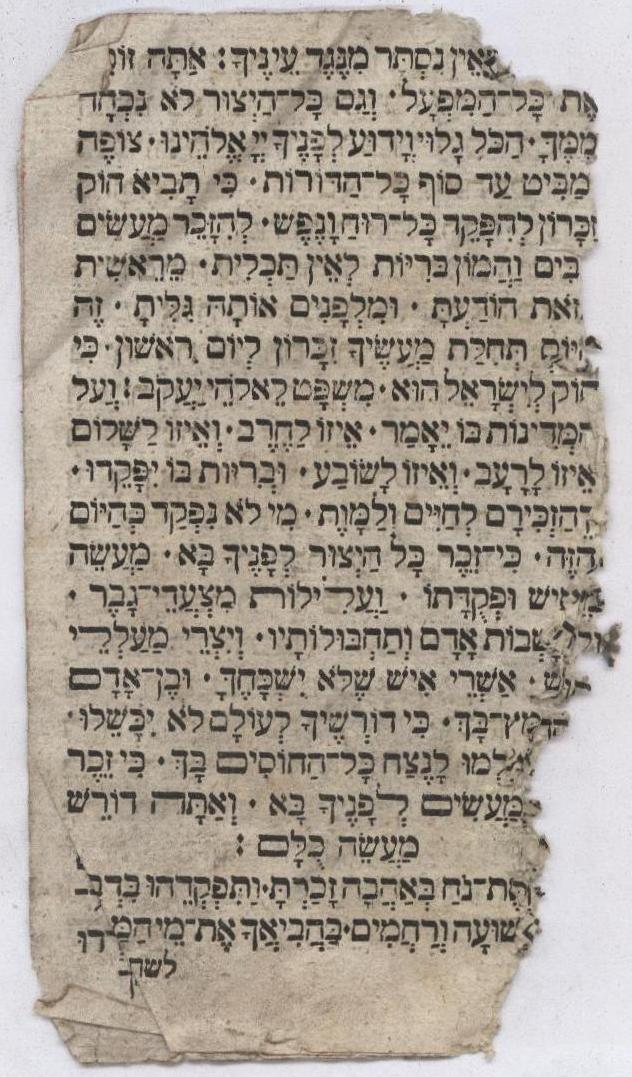 וְאֵין נִסְתָּר מִנֶּגֶד עֵינֶיךָ : אַתָּה זוֹ
אֶת כָּל־הַמִּפְעָל · וְגַם כָּל־הַיְצוּר לֹא נִכְחָד
מִמֶּךָּ · הַכֹּל גָּלוּי וְיָדוּעַ לְפָנֶיךָ יְיָ אֱלֹהֵינוּ · צוֹפֶה
מַבִּיט עַד סוֹף כָּל־הַדּוֹרוֹת · כִּי תָבִיא חוֹק
זִכָּרוֹן לְהִפָּקֵד כָּל־רוּחַ וָנֶפֶשׁ · לְהִזָּכֵר מַעֲשִׂים
בִּים וַהֲמוֹן בְּרִיּוֹת לְאֵין תַּכְלִית · מֵרֵאשִׁית
זֹאת הוֹדַעְתָּ · וּמִלְפָנִים אוֹתָהּ גִּלִּיתָ · זֶה
הַיּוֹם תְּחִלַּת מַעֲשֶׂיךָ זִכָּרוֹן לְיוֹם רִאשׁוֹן · כִּי
חוֹק לְיִשְׂרָאֵל הוּא · מִשְׁפָּט לֵאלֹהֵי יַעֲקֹב : וְעַל
הַמְּדִינוֹת בּוֹ יֵאָמַר · אֵיזוֹ לַחֶרֶב · וְאֵיזוֹ לַשָּׁלוֹם
אֵיזוֹ לָרָעָב · וְאֵיזוֹ לָשׂוֹבַע · וּבְרִיּוֹת בּוֹ יִפָּקֵדוּ ·
הַזְכִּירָם לְחַיִּים וְלַמָּוֶת · מִי לֹא נִפְקַד כְּהַיּוֹם
הַזֶּה · כִּי־זֵכֶר כָּל הַיְצוּר לְפָנֶיךָ בָּא · מַעֲשֵׂה
אִישׁ וּפְקֻדָּתוֹ · וַעֲלִילוֹת מִצְעֲדֵי־גָבֶר ·
מַחְשְׁבוֹת אָדָם וְתַחְבּוּלוֹתָיו · וְיִצְרֵי מַעַלְלֵי
אִישׁ · אַשְׁרֵי אִישׁ שֶׁלֹּא יִשְׁכָּחֶךָּ · וּבֶן־אָדָם
מֶּץ־בָּךְ · כִּי דוֹרְשֶׁיךָ לְעוֹלָם לֹא יִכָּשֵׁלוּ ·
לְמוּ לָנֶצַח כָּל־הַחוֹסִים בָּךְ · כִּי זֵכֶר
מַעֲשִׂים לְפָנֶיךָ בָּא · וְאַתָּה דוֹרֵשׁ
מַעֲשֵׂה כֻלָּם :
אֶת־נֹחַ בְּאַהֲבָה זָכַרְתָּ · וַתִּפְקְדֵהוּ בִּדְבַ
שׁוּעָה וְרַחֲמִים · בַּהֲבִיאֲךָ אֶת־מֵי הַמַּ
לשח